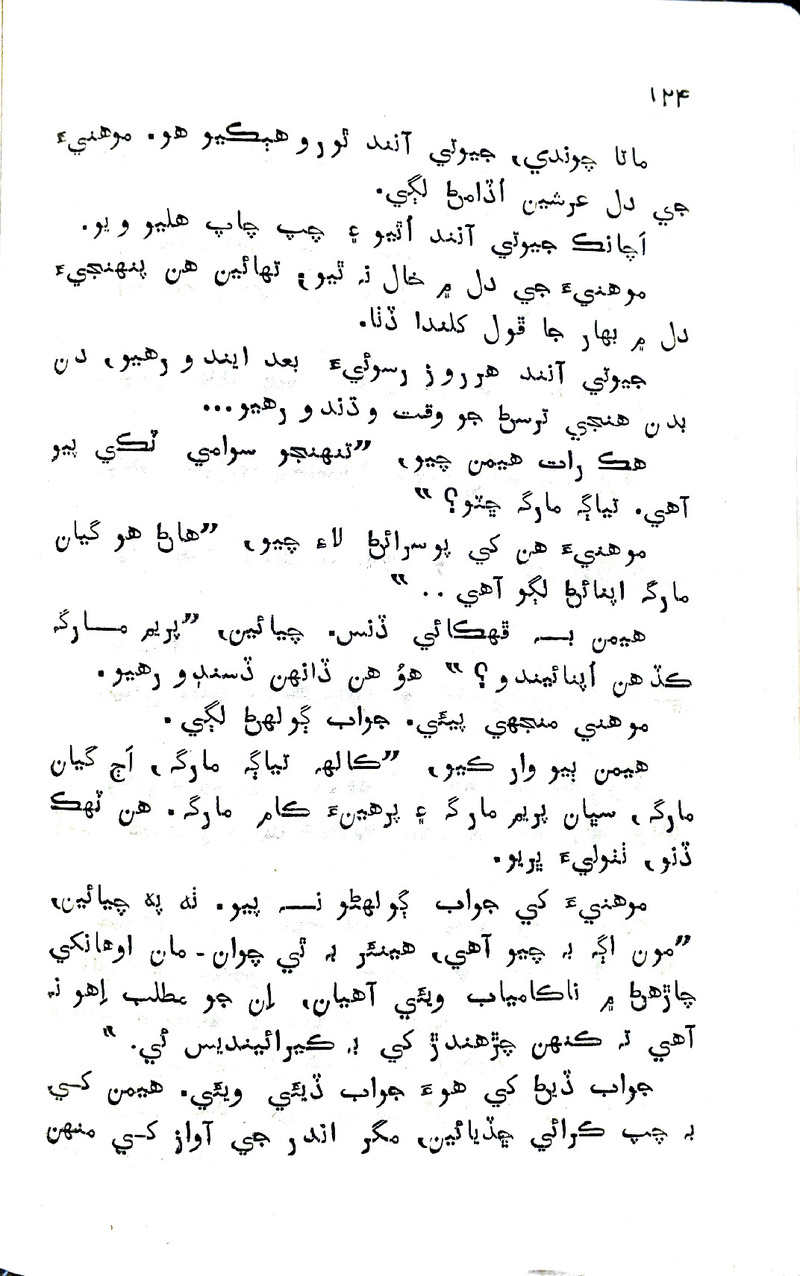 ١٢۴
ماتا چوندي، جيوتي آنند ٿورو هٻڪيو هو. موهنيءَ
جي دل عرشين اُڏامڻ لڳي.
اَچانڪ جيوتي آنند اُٿيو ۽ چپ چاپ هليو ويو.
موهنيءَ جي دل ۾ خال نہ ٿيو، تهائين هن پنهنجيءَ
دل ۾ بهار جا ڦول کلندا ڏٺا.
جيوتي آنند هرروز رسوئيءَ بعد ايندو رهيو، دن
بدن هنجي ترسڻ جو وقت وڌندو رهيو...
هڪ رات هيمن چيو، ”تنهنجو سوامي ٿڪي پيو
آهي. تياڳہ مارگہ ڇٽو؟“
موهنيءَ هن کي پوسرائڻ لاءِ چيو، ”هاڻ هو گيان
مارگہ اپنائڻ لڳو آهي . . “
هيمن بہ ڦهڪائي ڏنس. چيائين، ”پريم مارگہ
ڪڏهن اُپنائيندو؟“ هوُ هن ڏانهن ڏسندو رهيو.
موهني منجهي پيئي. جواب ڳولهڻ لڳي.
هيمن ٻيو وار ڪيو، ”ڪالهہ تياڳہ مارگہ، اَڄ گيان
مارگہ، سڀان پريم مارگہ ۽ پرهينءَ ڪام مارگہ. هن ٽهڪ
ڏنو، ٺٺوليءَ ڀريو.
موهنيءَ کي جواب ڳولهڻو نہ پيو. ٺهہ پهہ چيائين،
”مون اڳہ بہ چيو آهي، هينئر بہ ٿي چوان - مان اوهانکي
چاڙهڻ ۾ ناڪامياب ويئي آهيان، اِن جو مطلب اِهو نہ
آهي تہ ڪنهن چڙهندڙ کي بہ ڪيرائينديس ٿي. “
جواب ڏيڻ کي هوءَ جواب ڏيئي ويئي. هيمن کي
بہ چپ ڪرائي ڇڏيائين، مگر اندر جي آواز کي منهن